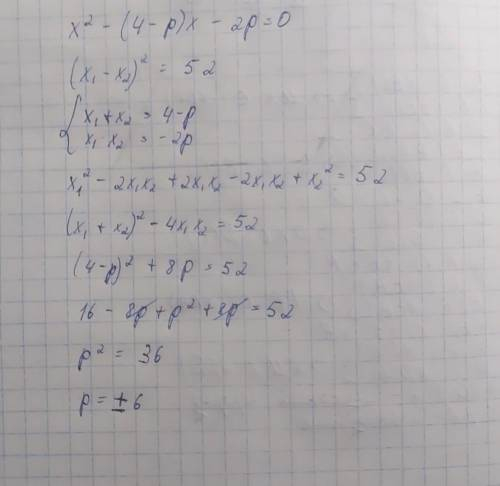 x² - (4-p)x - 2p = 0
(x₁ - x₂)² = 52
{ x₁ + x₂ = 4-p
x₁ x₂ = -2p
x₁² - 2x₁x₂ + 2x₁x₂ - 2x₁x₂ + x₂² = 52
(x₁ + x₂)² - 4x₁x₂ = 52
(4-p)² + 8p = 52
16 - 8p + p² + 8p = 52
p² = 36
p = ±6